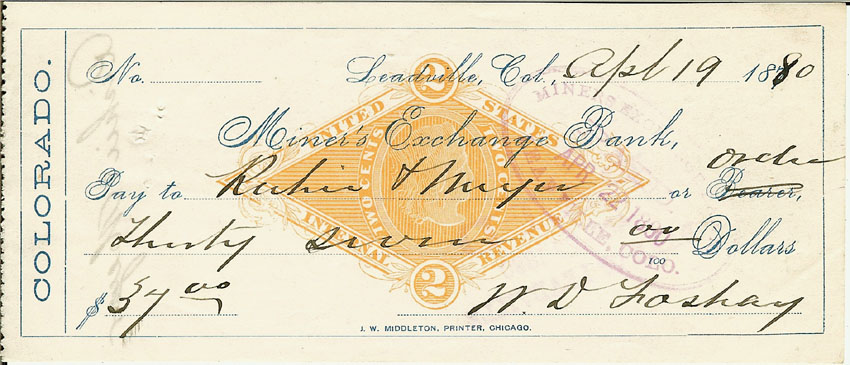 COLORADO.
No. Leadville, Col., Apl 19 1880
2
UNITED STATES
Miner's Exchange Bank,
TWO CENTS TWO CENTS
Pay to & Meyer or Bearer, order
Thirty seven 00/100 Dollars
INTERNAL REVENUE
2
$37 00 W. D. Foshay
MINERS EX
APR 22 1880
LEADVILLE, COLO.
J. W. MIDDLETON, PRINTER, CHICAGO.